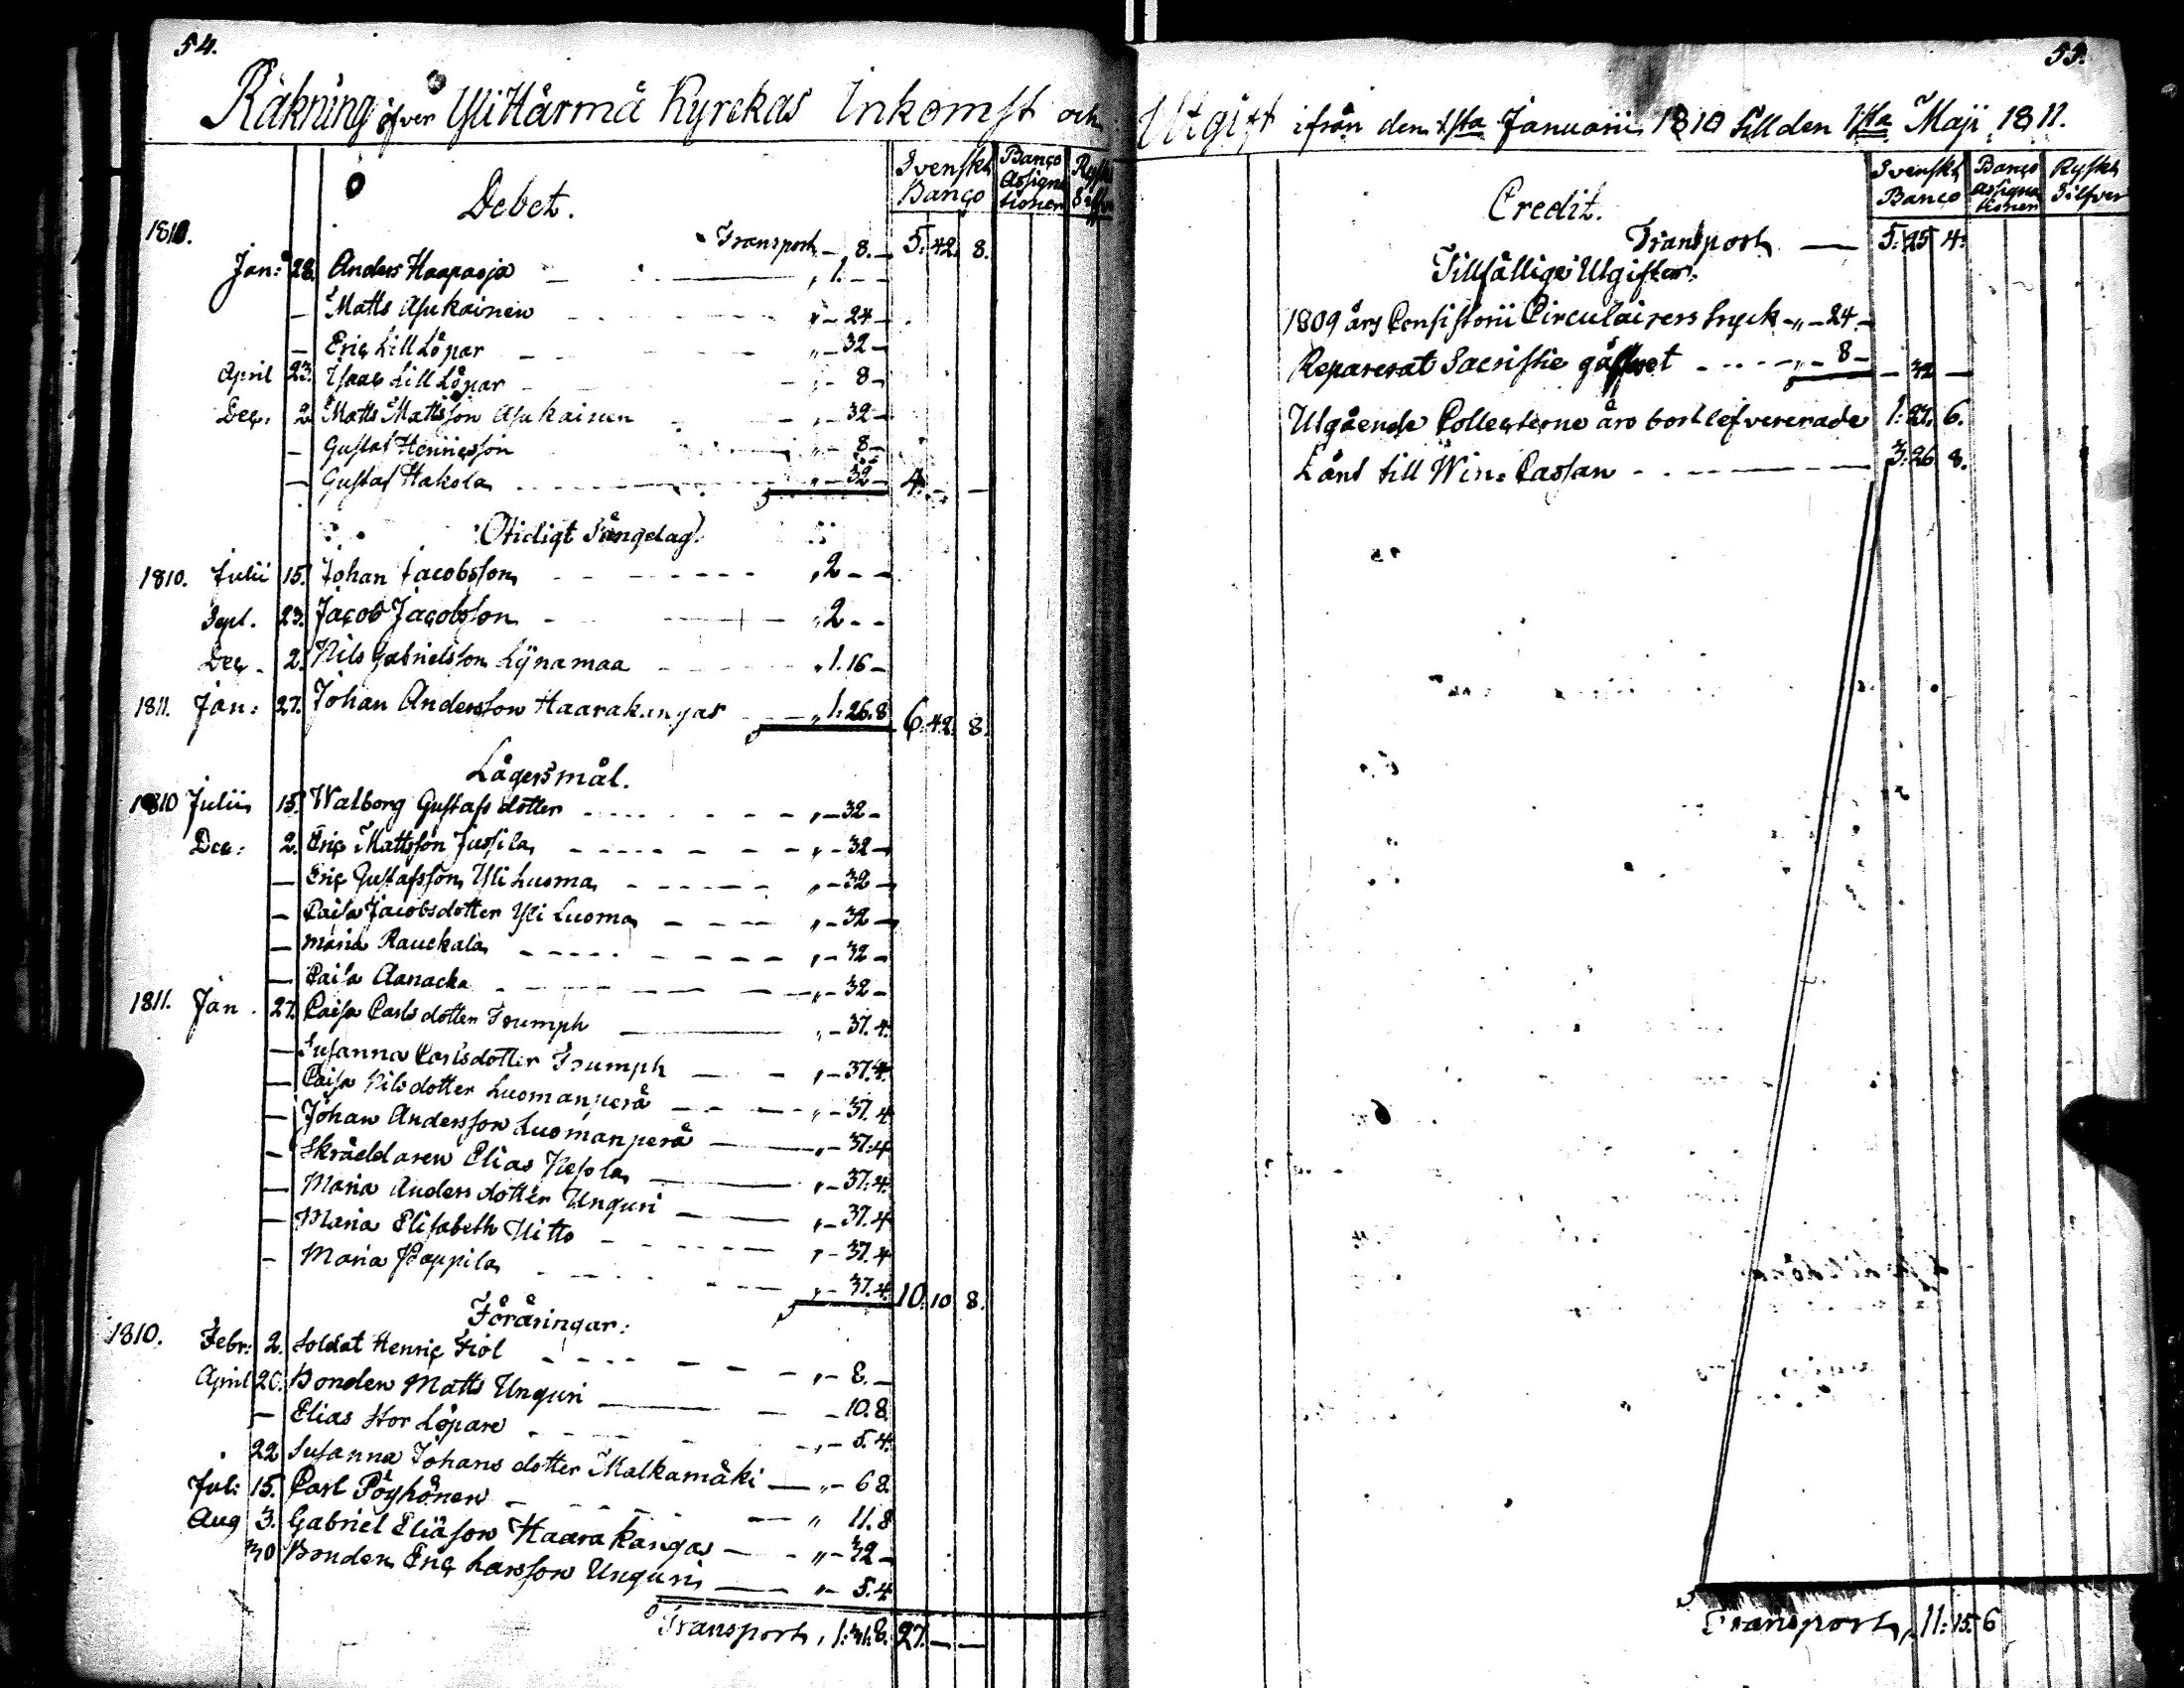 54.
Räkning öfver Yli Härmä Kyrckas Inkomst och
Debet.
Svenskt Banco
Banco Assignationer
Ryskt Silfver
1810. Transport - 8. - 5. 42. 8.
Jan: 28. Anders Haapaoja " 1. - -
- Matts Asukainen " - 24 -
- Eric Lill Löpar " - 32 -
April 23. Isaac Lill Löpar " - 8 -
Dec. 2. Matts Mattsson Asukainen " - 32 -
- Gustaf Henricsson " - 8 -
- Gustaf Hakola " - 32 - 4. - -
Otidigt Sängelag.
1810. Julii 15. Johan Jacobsson " 2 - -
Sept. 23. Jacob Jacobsson " 2 - -
Dec. 2. Nils Gabrielsson Lijnamaa " 1. 16 -
1811. Jan: 27. Johan Andersson Haarakangas " 1: 26. 8 6. 42. 8.
Lägersmål.
1810 Julii 15. Walborg Gustafsdotter " - 32 -
Dec: 2. Eric Mattsson Jussila " - 32 -
- Eric Gustafsson Yli Luoma " - 32 -
- Caisa Jacobsdotter Yli Luoma " - 32 -
- Maria Rauckala " - 32 -
- Caisa Aanacka " - 32 -
1811. Jan. 27. Caisa Carlsdotter Trumph " - 37. 4.
- Susanna Carlsdotter Trumph " - 37. 4.
- Caisa Nilsdotter Luomanperä " - 37. 4
- Johan Andersson Luomanperä " 37: 4
- Skräddaren Elias Nisola " - 37: 4.
- Maria Andersdotter Unguri " - 37. 4
- Maria Elisabeth Uitto " - 37. 4
- Maria Pappila " - 37. 4. 10. 10 8.
Föräringar:
1810. Febr: 2. Soldat Henric Fiol " - 8. -
April 20. Bonden Matts Unguri - 10. 8.
- Elias Stor Löpare " - 5. 4.
22 Susanna Johansdotter Malkamäki " - 6 8.
Jul: 15. Carl Pöyhönen " 11. 8
Aug 3. Gabriel Eliäson Haarakangas " - 32 -
30 Bonden Eric Larsson Unguri " - 5. 4
Transport, 1: 31. 8. 27. - -
55.
Utgift ifrån den 1sta Januarii 1810 till den 1sta Maji 1811.
Credit.
Svenskt Banco
Banco Assignationer
Ryskt Silfver
Transport 5: 25 4:
Tillfällige Utgifter.
1809 års Consistorii Circulairers tryck - " - 24 -
Repareratt Sacristie " - 8 - - 32 -
Utgående Collecterne äro bortlefvererade 1: 27. 6.
Länt till Win-Cassan 3: 26 8.
Transport, 11: 15. 6